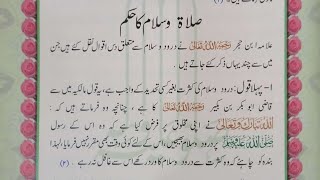 صلاۃ وسلام کا حکم
علامہ ابن حجر رحمۃ اللہ تعالٰی نے درود و سلام سے متعلق دس اقوال نقل کئے ہیں جن میں
سے چند یہاں ذکر کئے جاتے ہیں۔
۱- پہلا قول: درود و سلام کی کثرت بغیر کسی تحدید کے واجب ہے، یہ قول مالکیہ میں سے
قاضی ابو بکر بن بکیر رحمۃ اللہ تعالٰی کا ہے، چنانچہ وہ فرماتے ہیں کہ
اللہ تبارک وتعالٰی نے اپنی مخلوق پر فرض کیا ہے کہ وہ اس کے رسول
صلی اللہ علیہ وسلم پر درود و سلام بھیجیں، اس کے لئے کوئی وقت بھی مقرر نہیں فرمایا، لہٰذا
بندہ کو چاہئے کہ وہ کثرت سے درود و سلام کا ورد رکھے اس سے غافل نہ رہے۔ (۲)